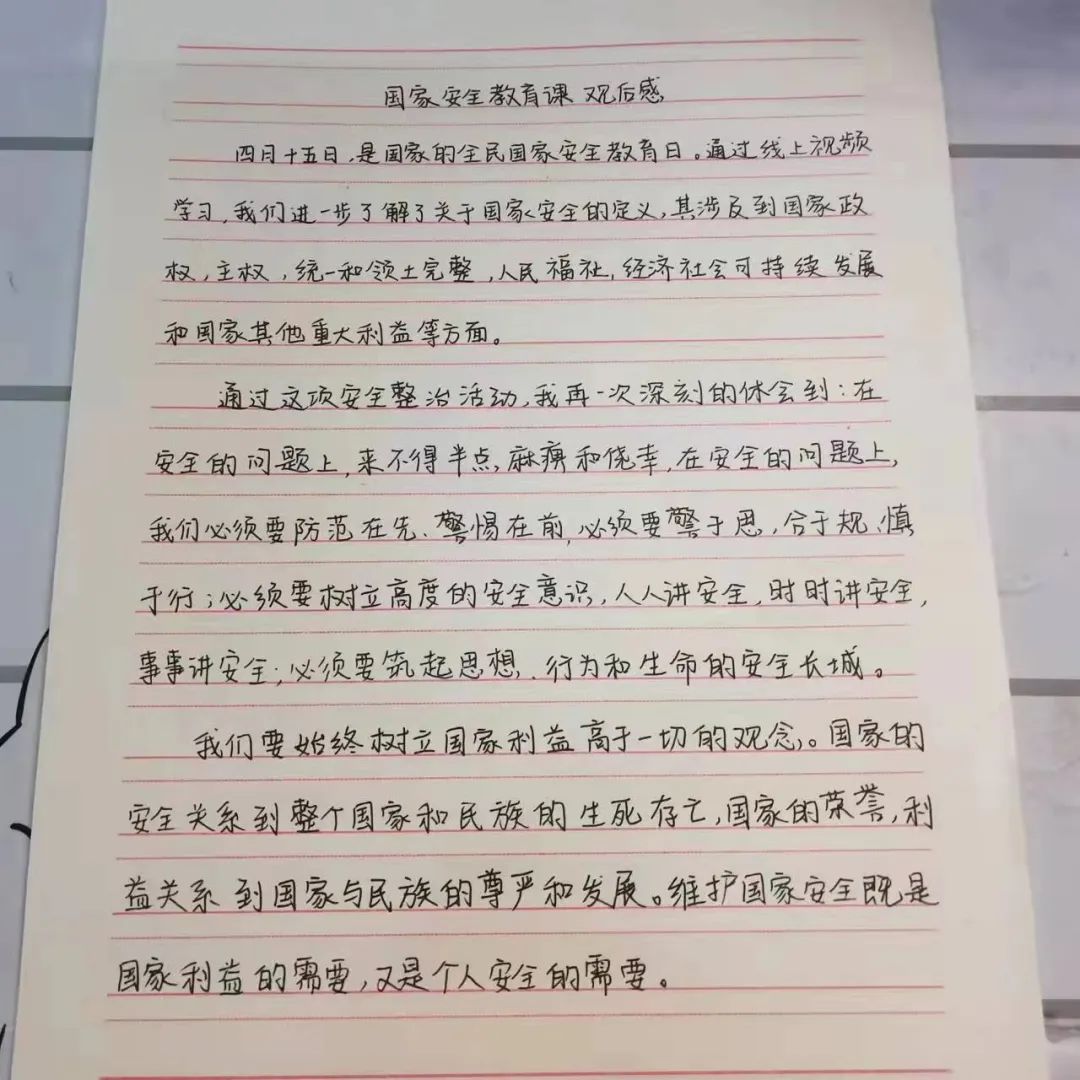 国家安全教育课 观后感
四月十五日,是国家的全民国家安全教育日。通过线上视频
学习,我们进一步了解了关于国家安全的定义,其涉及到国家政
权,主权,统一和领土完整,人民福祉,经济社会可持续发展
和国家其他重大利益等方面。
通过这项安全整治活动,我再一次深刻的体会到:在
安全的问题上,来不得半点,麻痹和侥幸,在安全的问题上,
我们必须要防范在先、警惕在前,必须要警于思,合于规、慎
于行;必须要树立高度的安全意识,人人讲安全,时时讲安全,
事事讲安全;必须要筑起思想、行为和生命的安全长城。
我们要始终树立国家利益高于一切的观念。国家的
安全关系到整个国家和民族的生死存亡,国家的荣誉,利
益关系到国家与民族的尊严和发展。维护国家安全既是
国家利益的需要,又是个人安全的需要。